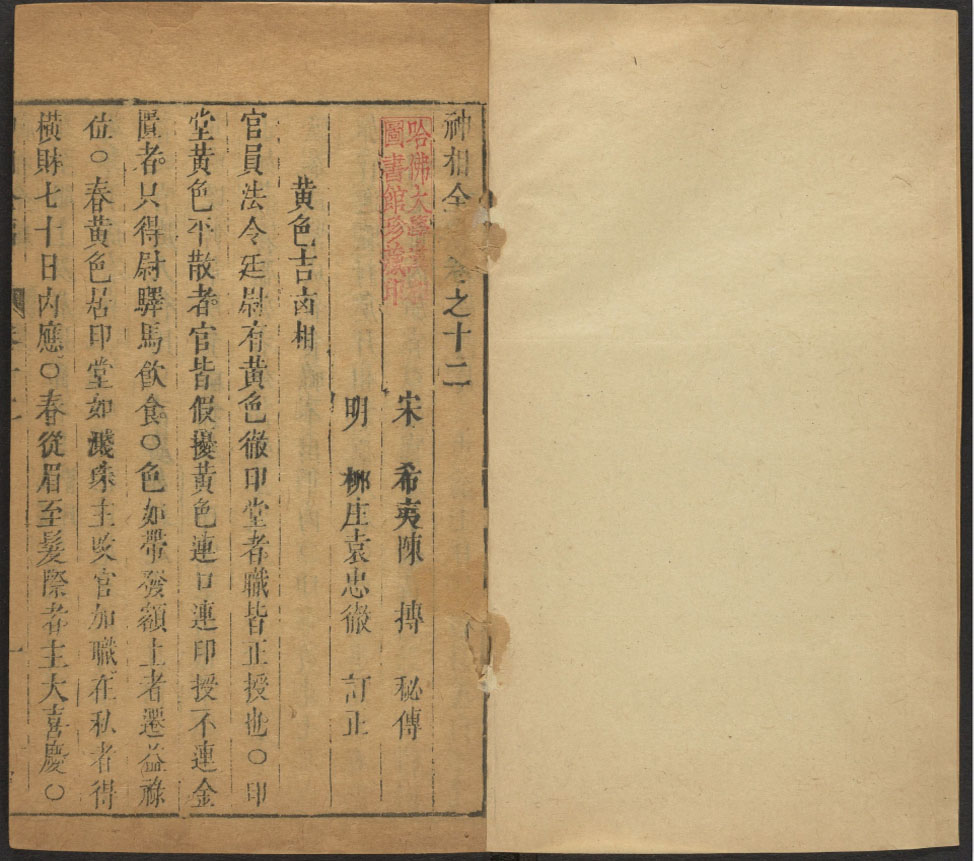 神相全編卷之十二
哈佛大學漢和
圖書館珍藏印
宋 希夷陳 摶 秘傳
明 柳庄袁忠徹 訂正
黃色吉凶相
官員法令廷尉有黃色徹印堂者職皆正授也○印
堂黃色不散者官皆假擾黃色連口連印授不連金
匱者只得尉驛馬飲食○色如帶發額上者遷益祿
位○春黃色居印堂如 主 官加職在私者得
橫財七十日內應○春從眉至髮際者主大喜慶○